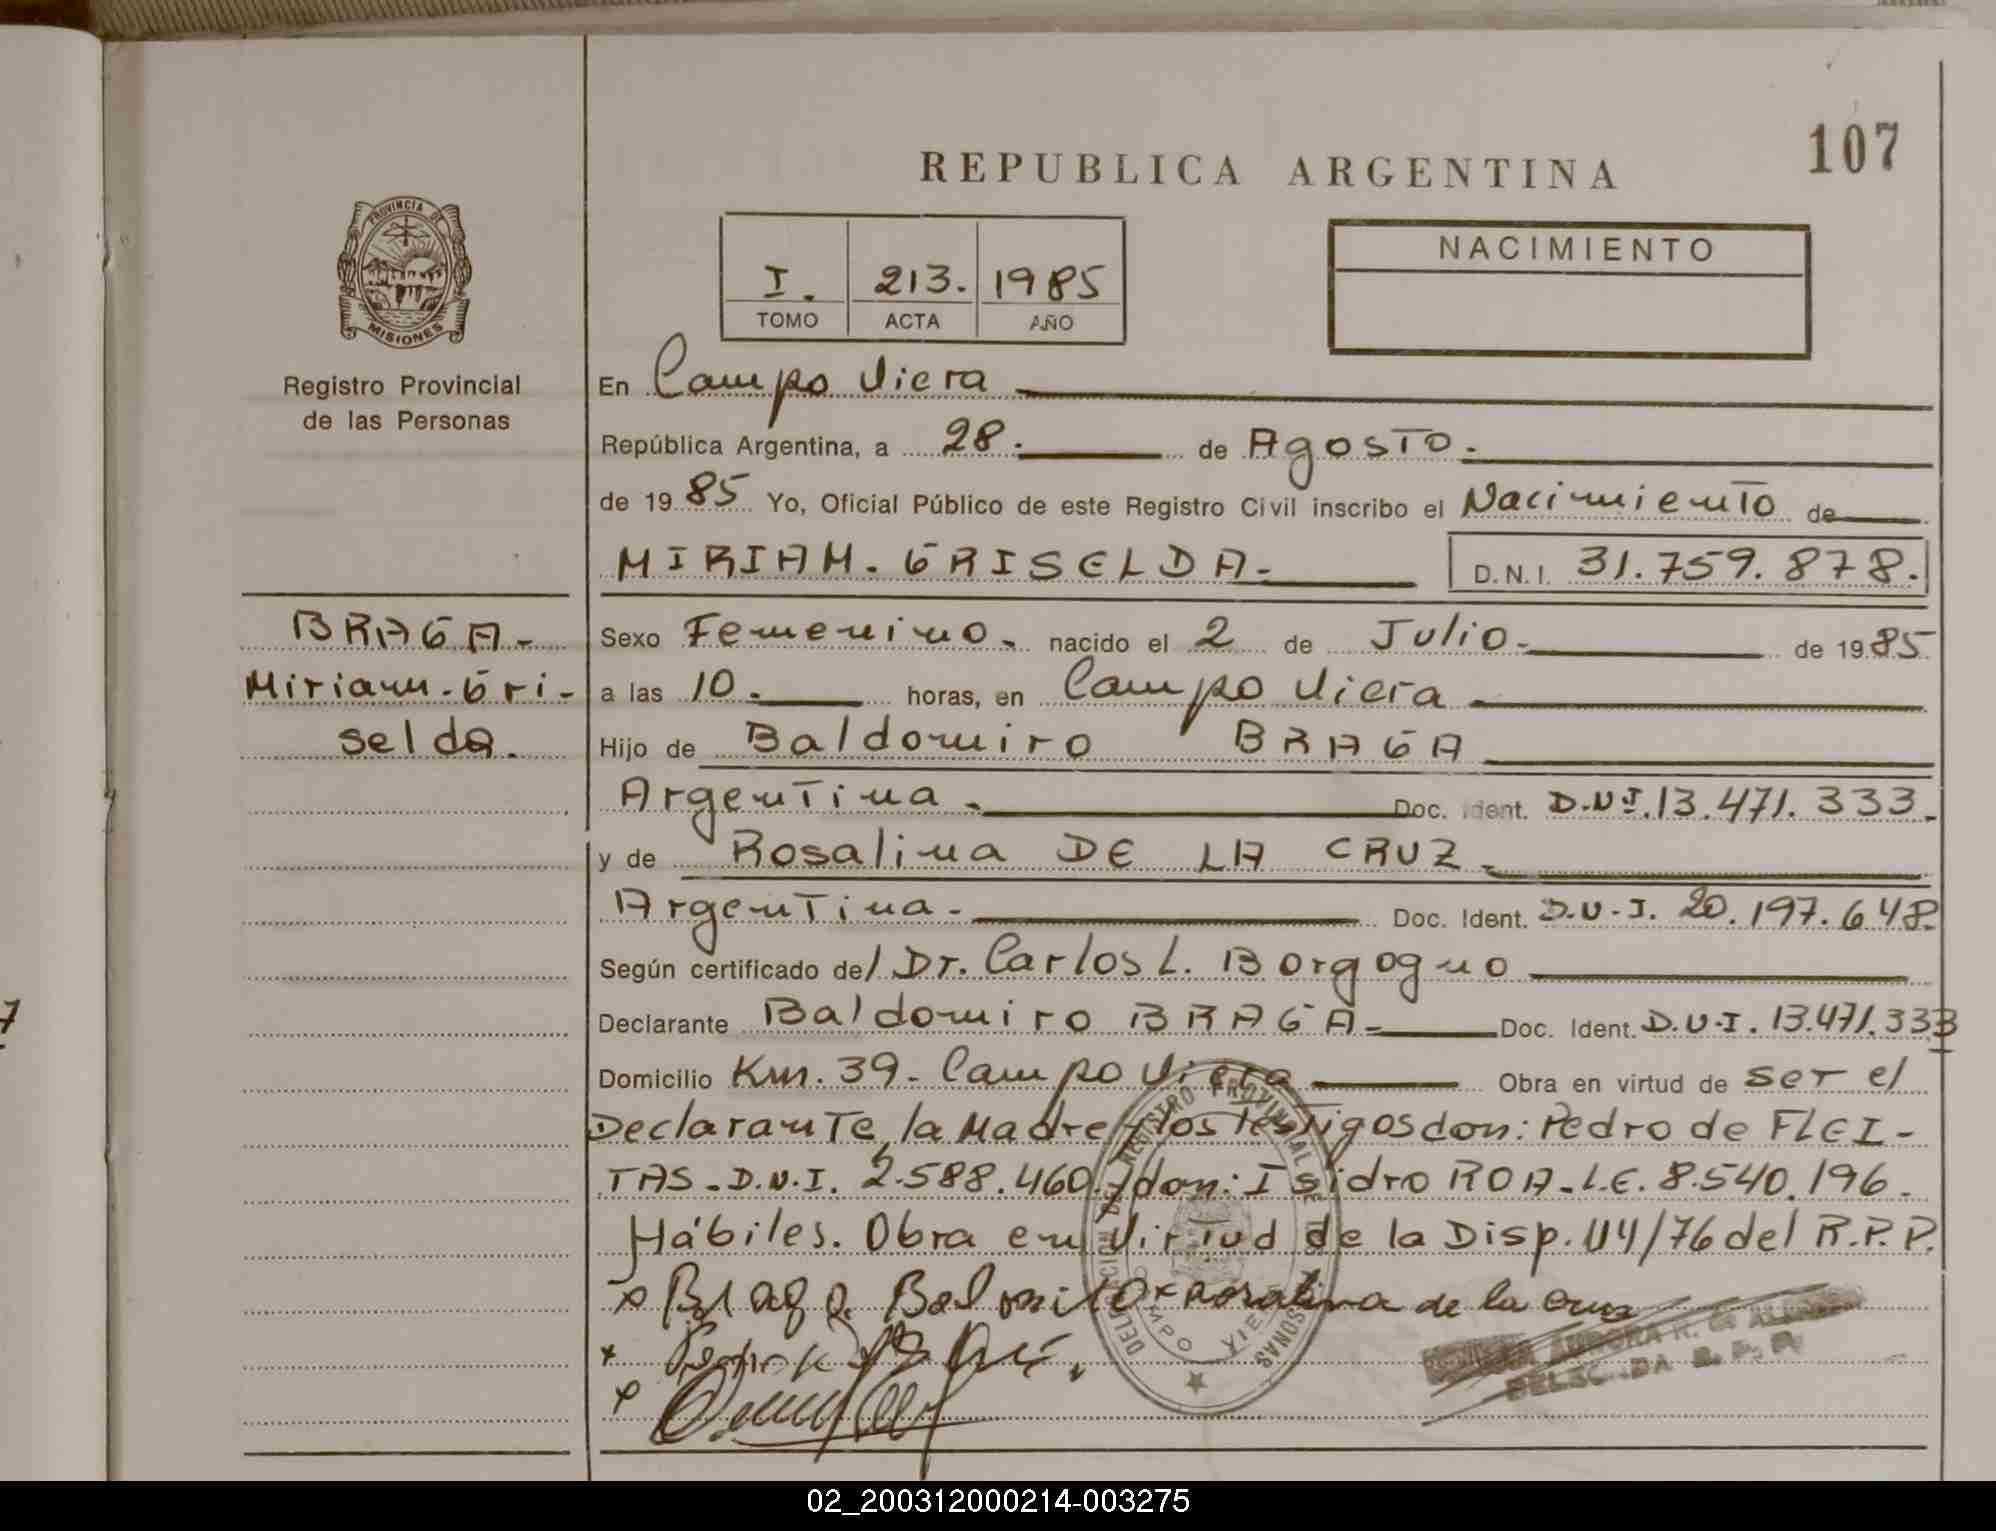 107
REPUBLICA ARGENTINA
PROVINCIA DE
MISIONES
I. 213. 1985
TOMO ACTA AÑO
NACIMIENTO
Registro Provincial
de las Personas
En Campo Viera
República Argentina, a 28. de Agosto.
de 1985 Yo, Oficial Público de este Registro Civil inscribo el Nacimiento de
MIRIAM. GRISELDA- D.N.I. 31.759.878.
BRAGA-
Miriam. Gri-
selda.
Sexo Femenino. nacido el 2 de Julio- de 1985
a las 10. horas, en Campo Viera
Hijo de Baldomiro BRAGA
Argentina. Doc. Ident. D.N.I. 13.471.333.
y de Rosalina DE LA CRUZ.
Argentina- Doc. Ident. D.N.I. 20.197.648.
Según certificado del Dr. Carlos L. Borgogno
Declarante Baldomiro BRAGA- Doc. Ident. D.N.I. 13.471.333
Domicilio Km. 39- Campo Viera Obra en virtud de ser el
Declarante, la Madre y los testigos don: Pedro de FLEI-
TAS-D.N.I. 2.588.460. y don: Isidro ROA-L.E. 8.540.196.
Hábiles. Obra en Virtud de la Disp. 114/76 del R.P.P.
x Braga Rosalina de la Cruz
AURORA R. de
R. P. P.
REGISTRO PROVINCIAL DE LAS PERSONAS
CAMPO VIERA
7
02_200312000214-003275